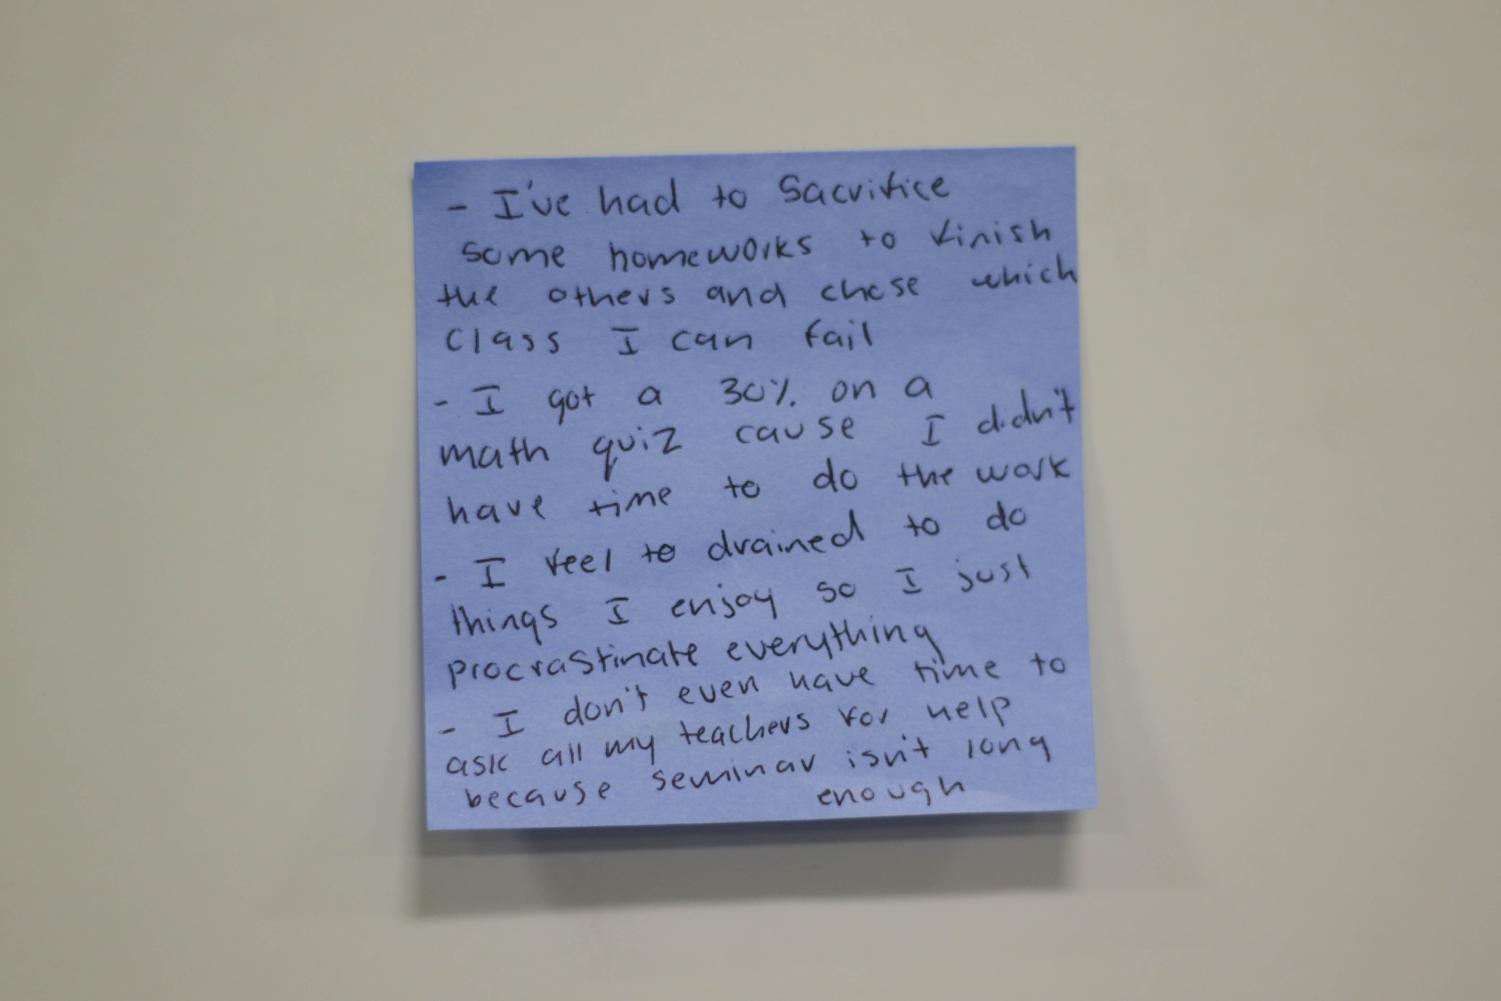 - I've had to Sacrifice
some homeworks to finish
the others and chose which
class I can fail
- I got a 30% on a
math quiz cause I didn't
have time to do the work
- I feel to drained to do
things I enjoy so I just
procrastinate everything
- I don't even have time to
ask all my teachers for help
because seminar isn't long
enough